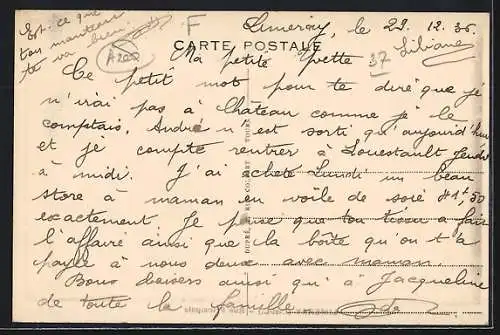 Est-ce que
ton manteau
te va bien.
A200
F
Limeray, le 29.12.36.
CARTE POSTALE
37
Liliane
Ma petite Yvette
Ce petit mot pour te dire que je
n'irai pas à Château comme je le
comptais. André n'est sorti qu'aujourd'hui
et je compte rentrer à Louestault Jeudi
à midi. J'ai acheté Lundi un beau
store à maman en voile de soie
exactement je pense que ton tissu a fait
l'affaire ainsi que la boîte qu'on t'a
payée à nous deux avec maman.
Bons baisers ainsi qu'à Jacqueline
de toute la famille.